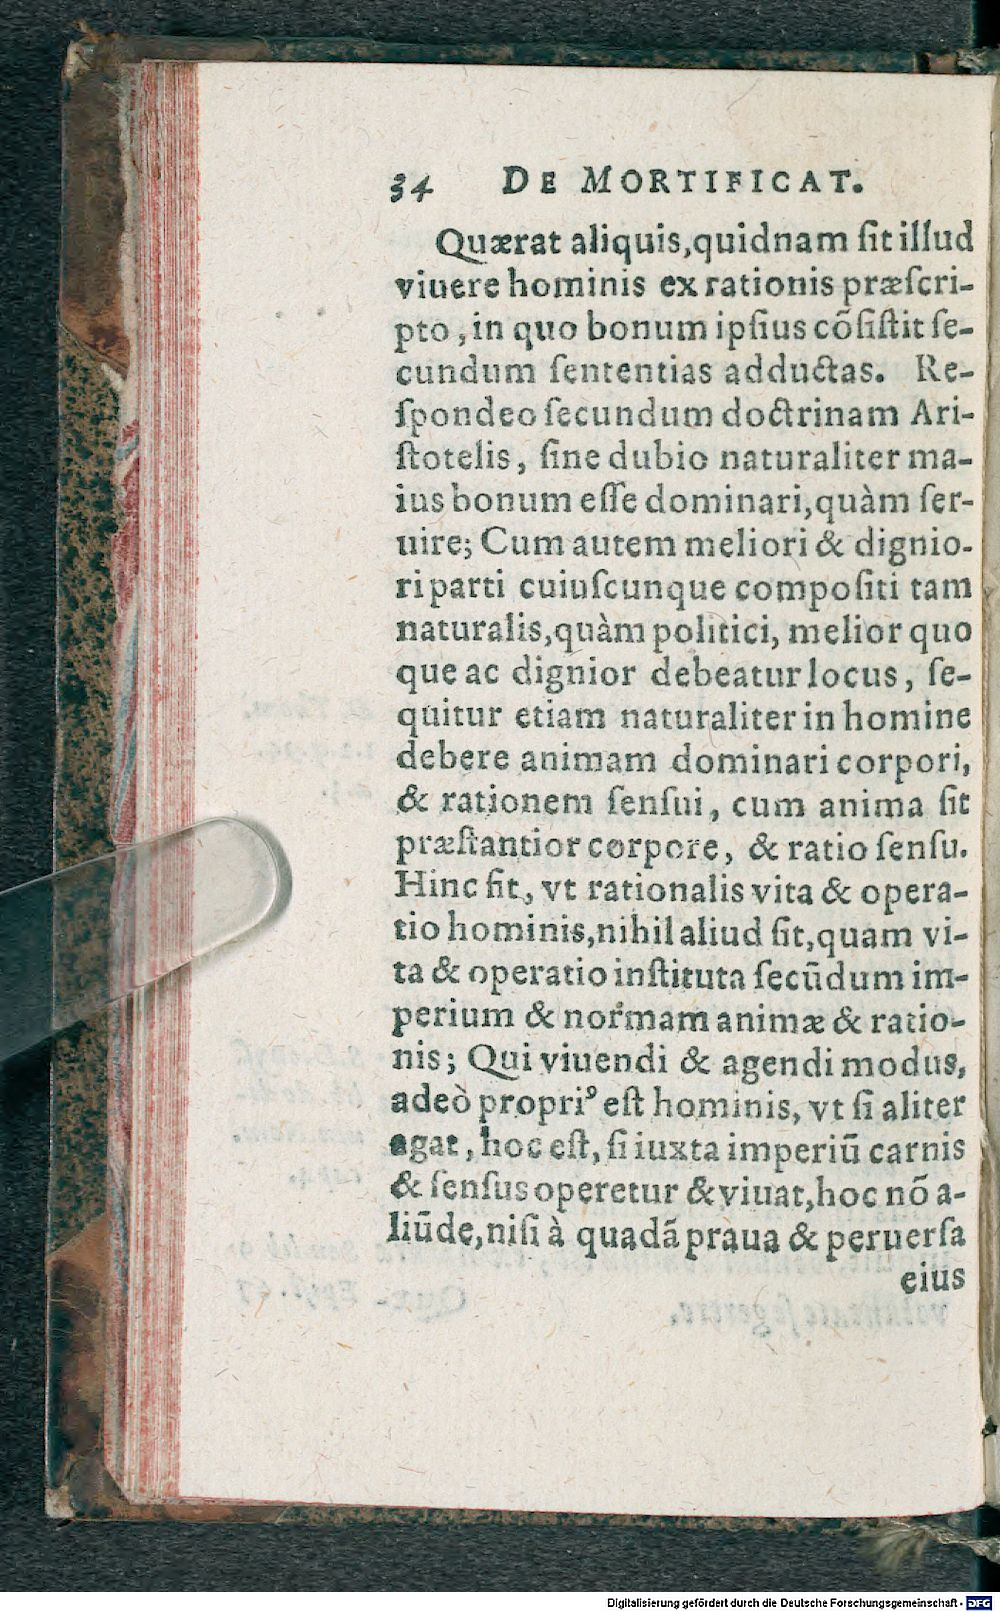 34 DE MORTIFICAT.
Quærat aliquis, quidnam ſit illud
viuere hominis ex rationis præſcri-
pto, in quo bonum ipſius cõſiſtit ſe-
cundum ſententias adductas. Re-
ſpondeo ſecundum doctrinam Ari-
ſtotelis, ſine dubio naturaliter ma-
ius bonum eſſe dominari, quàm ſer-
uire; Cum autem meliori & dignio-
ri parti cuiuſcunque compoſiti tam
naturalis, quàm politici, melior quo
que ac dignior debeatur locus, ſe-
quitur etiam naturaliter in homine
debere animam dominari corpori,
& rationem ſenſui, cum anima ſit
præſtantior corpore, & ratio ſenſu.
Hinc fit, vt rationalis vita & opera-
tio hominis, nihil aliud ſit, quam vi-
ta & operatio inſtituta ſecũdum im-
perium & normam animæ & ratio-
nis; Qui viuendi & agendi modus,
adeò propriꝰ eſt hominis, vt ſi aliter
agat, hoc eſt, ſi iuxta imperiũ carnis
& ſenſus operetur & viuat, hoc nõ a-
liũde, niſi à quadã praua & peruerſa
eius
Digitalisierung gefördert durch die Deutsche Forschungsgemeinschaft - DFG